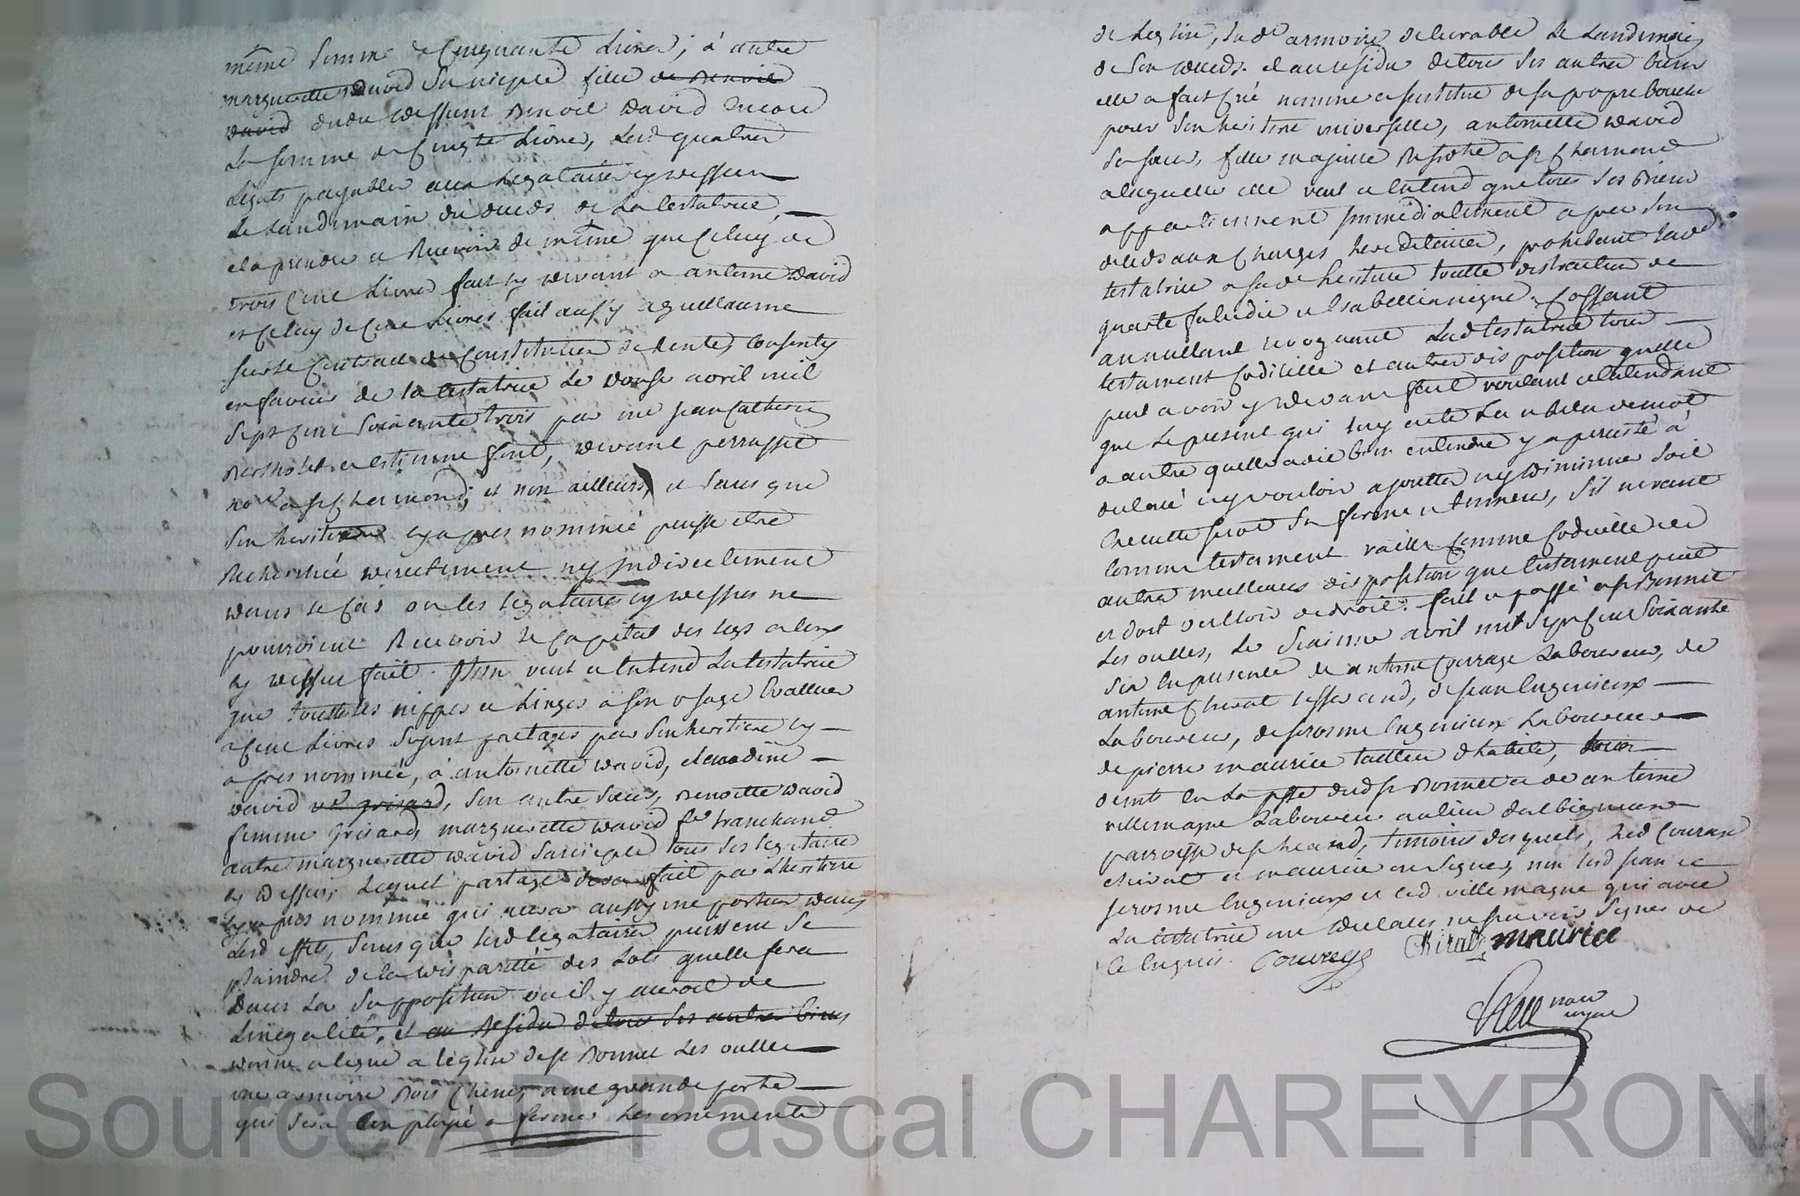 même somme de Cinquante Livres; à autre
margueritte David sa niepce fille de Benoit
David dudit dessus Benoit David encore
La somme de Cinqte Livres, Lesd quatres
Legats payables aux Legataires cy dessus
Le Landemain du deceds de La testatrice,
et a prendre et Recevoir de même que Celuy de
trois Cent Livres fait cy devant a antoine David
et Celuy de Cent Livres fait aussy a guillaume
sur le Contract de Constitution de Rentes Consenty
en faveur de la testatrice Le douse avril mil
Sept Cent Soixante trois par me Jean Catherin
Bertholet et estienne font, devant perrussel
no.re a st Chermond; et non ailleurs, et sans que
Son heritiere cy apres nommée puisse etre
Recherchée directement ny Indirectement
dans le Cas ou les legataires cy dessus ne
pourroient Recevoir le Capital des legs a eux
cy dessus fait. Plus veut et entend La testatrice
que toutes les nippes et Linges a son usage Evallués
a Cent Livres soyent partages par Son heritiere cy
apres nommée, à antoinette David, claudine
David ve grisard, Son autre Sœur, Benoitte David
femme Grisard, margueritte David fe tranchand
autre margueritte David Sa niepce tous ses legataire
cy dessus, Lequel partage sera fait par L'heritiere
cy apres nommée qui aura aussy une portion dans
Lesd effets, sans que lesd legataires puissent se
plaindre de la disparitté des Lots quelle fera
Dans La Supposition ou il y auroit de
Linegalité, et au Residu de tous Ses autres biens
donne et legue a l'eglise de st Bonnet Les oulles
une armoire Bois Chene, a une grande porte
qui Sera employé a fermer Les ornements
de Leglise, Lad armoire delivrable Le Landemain
de Son deceds. et au residu de tous Ses autres biens
elle a fait Créé nommé et institué de Sa propre bouche
pour Son heritiere universelle, antoinette David
Sa Sœur, fille majeure Residte a st Chermond
a laquelle elle veut et Entend que tous Ses Biens
appartiennent Immediatement apres Son
deceds aux Charges hereditaires, prohibant Lad
testatrice a Sade heritiere toutte distraction de
quarte falcidie et trabellianique. Cassant
annullant revoquant Lad testatrice tous
testament Codicille et autres disposition quelle
peut avoir cy devant fait voulant et Entendant
que Le present qui luy a ete Lu et Relu de mot
a autre quelle a dit bien entendre y a percisté à
declaré ny vouloir ajoutter ny diminuer Soit
execuutté Selon Sa forme et teneur, S'il ne vaut
Comme testament vaille Comme Codicille et
autre meilleure disposition que testament peut
et doit valloir de droit. fait et passé a st Bonnet
Les oulles, Le Seisieme avril mil Sept Cent Soixante
Six En presence de antoine Courage Laboureur, de
antoine Chirat tisserand, de Jean Ingenieux
Laboureur, de Jerosme Ingenieux Laboureur
de pierre maurice tailleur d'habits,
demts En La psse dud st Bonnet et de antoine
villemagne Laboureur au lieu dalbignieux
parroisse de st heand, temoins desquels, Led Courage
Chirat et maurice ont Signes, non lesd Jean et
Jerosme Ingenieux et led villemagne qui avec
La testatrice ont declares ne scavoir Signer de
Ce Enquis. Courage Chirat maurice